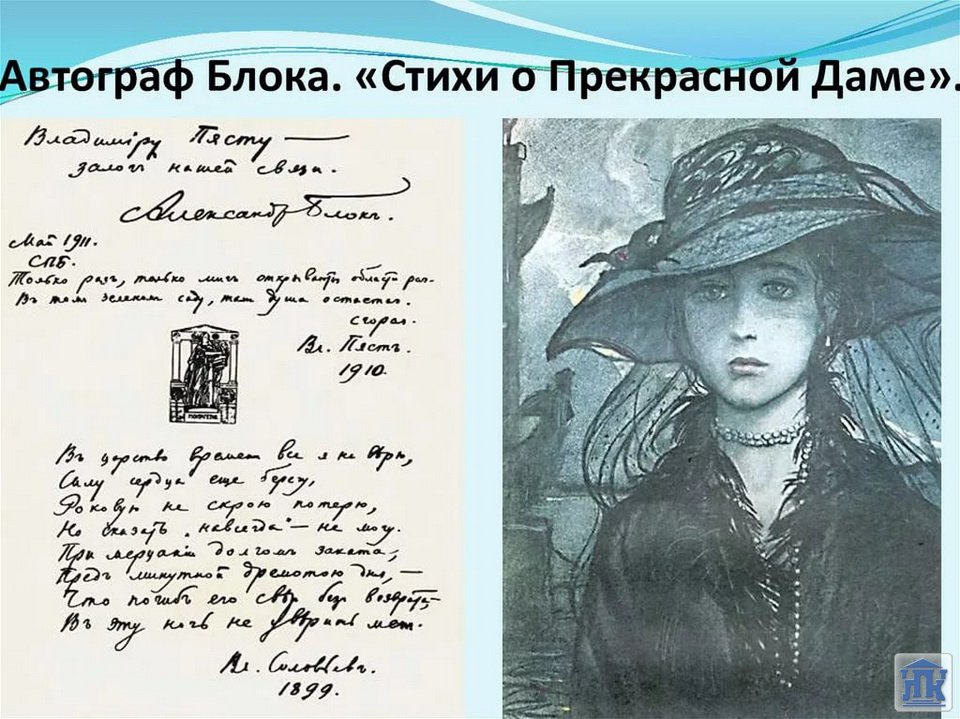 Автограф Блока. «Стихи о Прекрасной Даме».
Владиміру Пясту —
залогъ нашей связи.
Александръ Блокъ.
Май 1911.
СПБ.
Только разъ, только мигъ
Въ томъ зеленомъ саду, тамъ душа
сгорал.
Вл. Пястъ.
1910.
Въ царство времени все я не вѣрю,
Силу сердца еще берегу,
Роковую не скрою потерю,
Но сказать „навсегда" — не могу.
При мерцаніи долгомъ заката,
Предъ минутной дремотою дня, —
Что погибъ его свѣтъ безъ возврата
Въ эту ночь не увѣришь меня.
Вл. Соловьевъ.
1899.
ПК